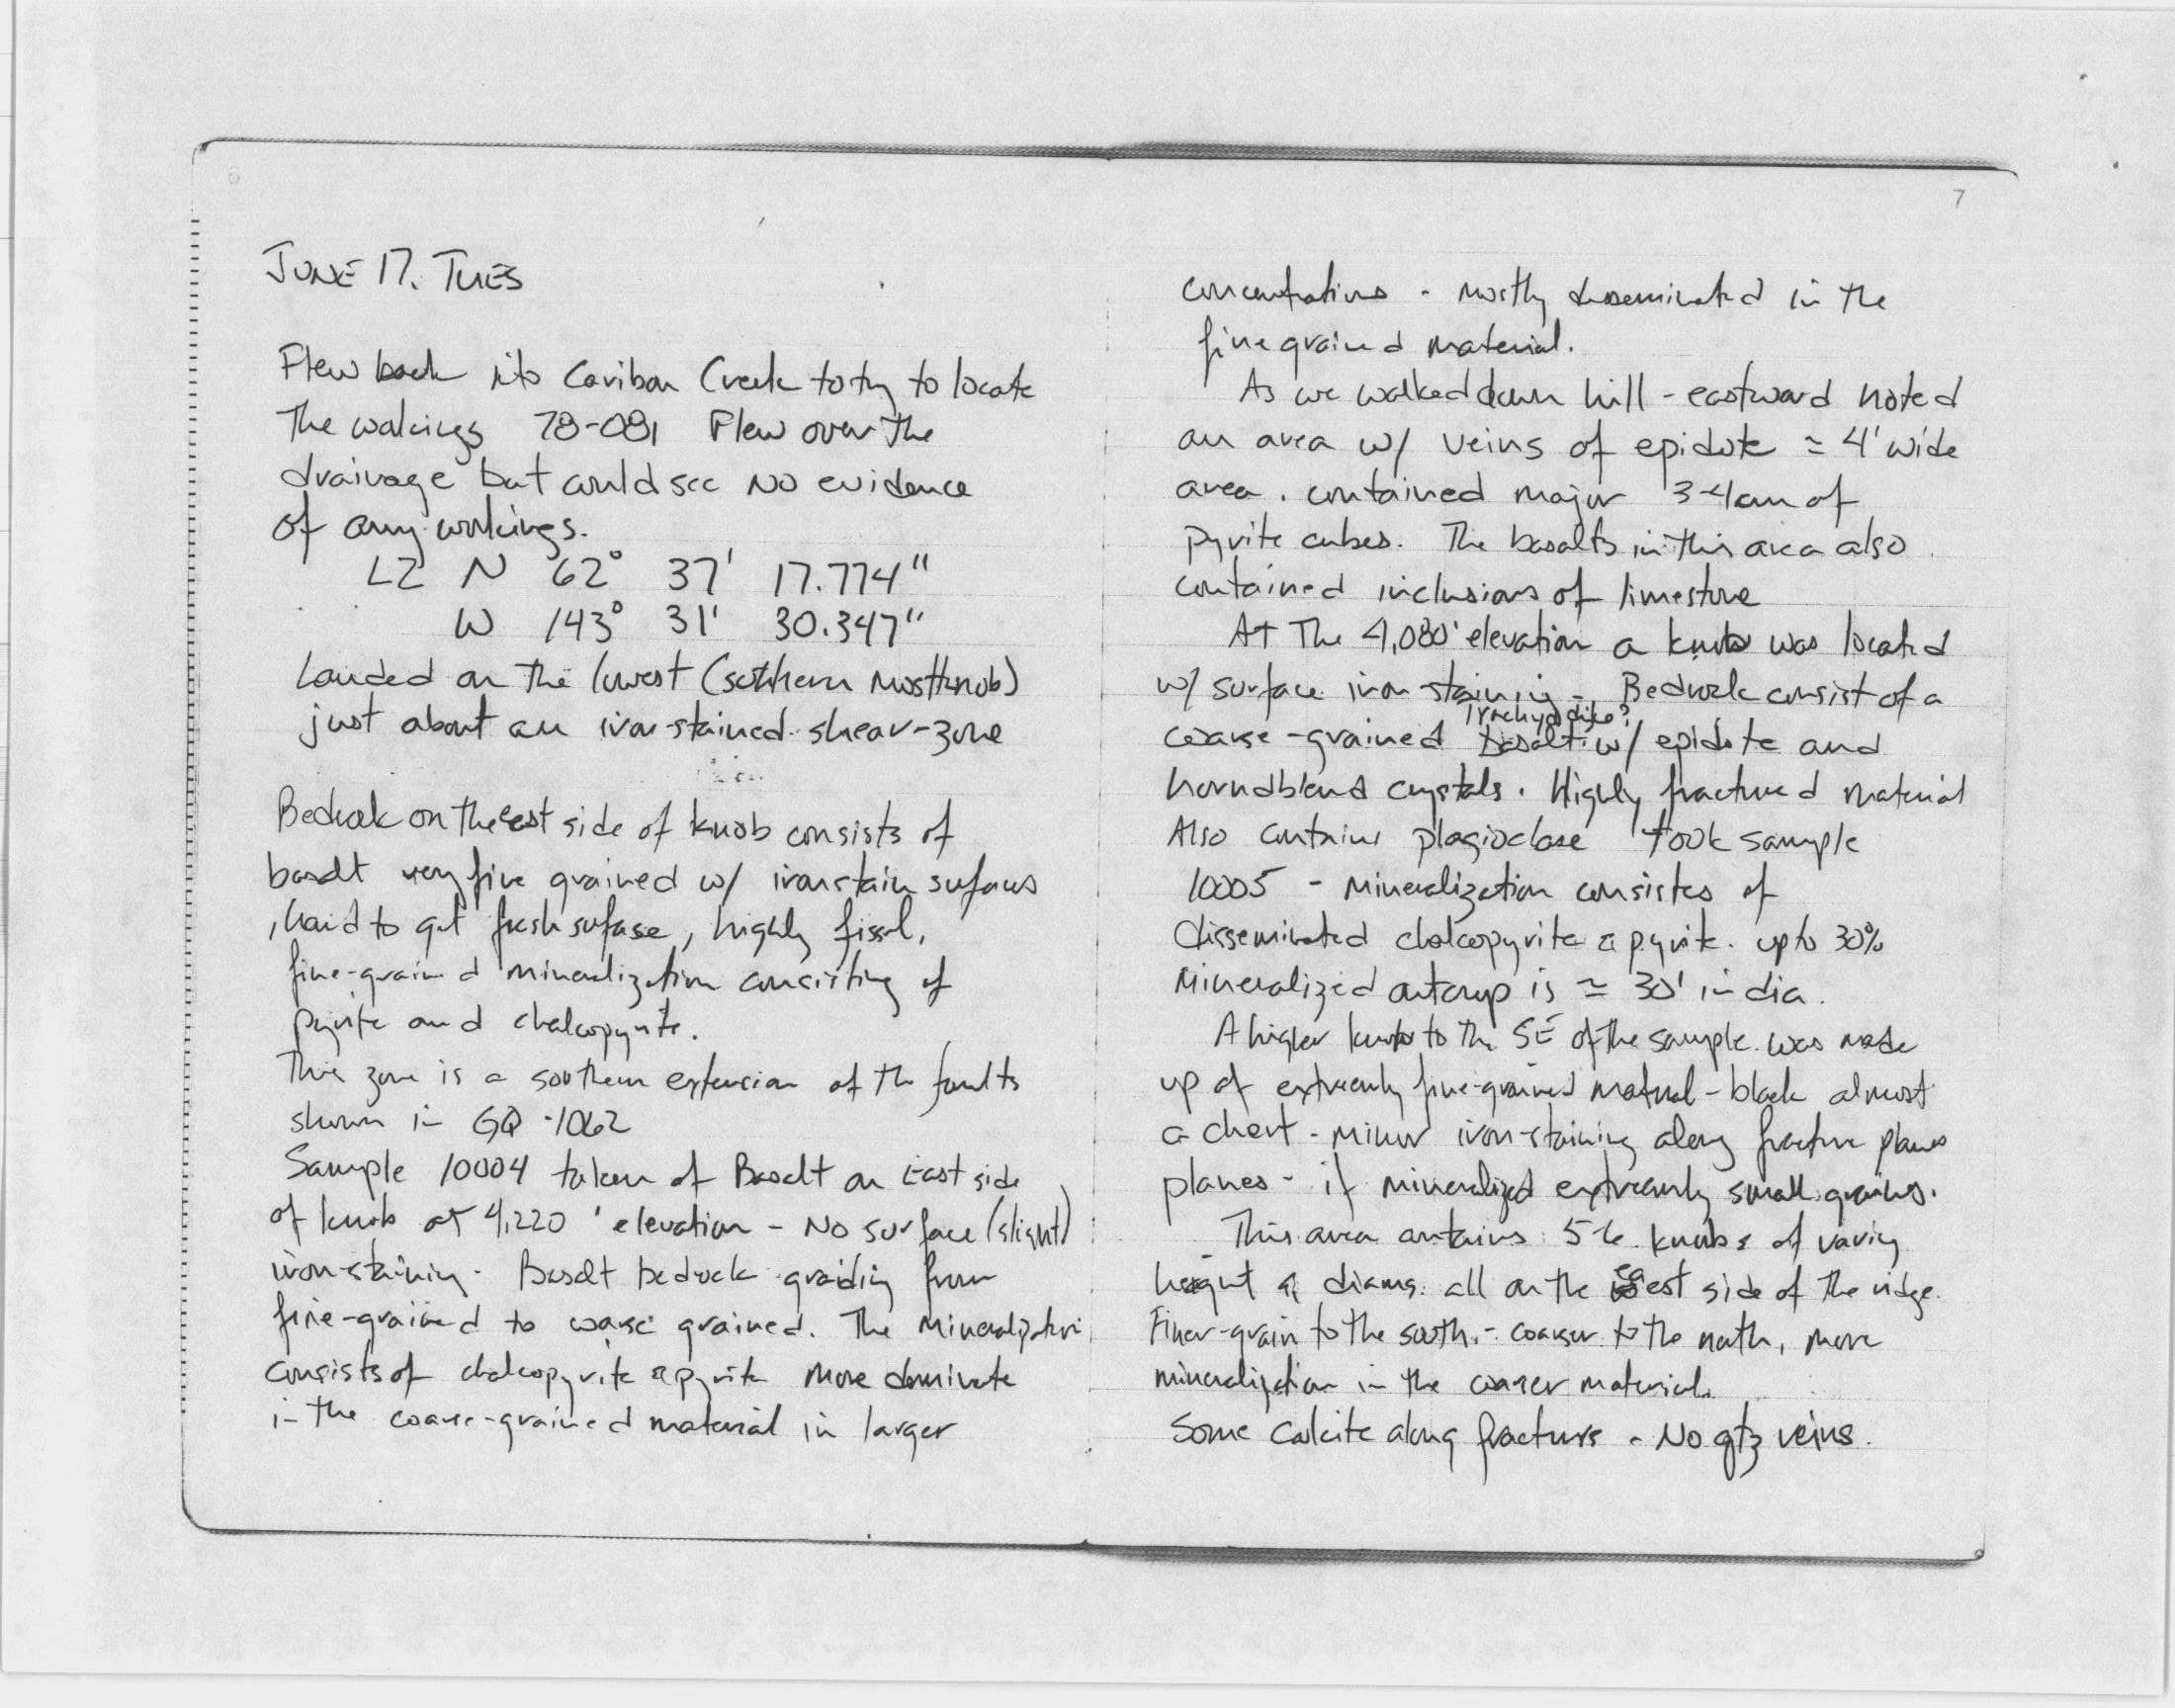 6
JUNE 17. TUES
Flew back into Caribou Creek to try to locate
The workings 78-081 Flew over The
drainage but could see No evidence
of any workings.
LZ N 62° 37' 17.774"
W 143° 31' 30.347"
Landed on The lowest (southern most knob)
just about an iron-stained shear-zone
Bedrock on the east side of knob consists of
basalt very fine grained w/ iron stain sufaces
, hard to get fresh sufase, highly fissl,
fine-grained mineralization consisting of
pyrite and chalcopyrite.
This zone is a southern extension of the faults
shown in GQ-1062
Sample 10004 taken of Basalt on East side
of knob at 4,220' elevation - No surface (slight)
iron-staining. Basalt bedrock graiding from
fine-grained to coarse grained. The Mineralization
consists of chalcopyrite & pyrite more dominate
in the coarse-grained material in larger
7
concentrations - mostly disseminated in the
fine grained material.
As we walked down hill - eastward noted
an area w/ veins of epidote ≈ 4' wide
area. contained major 3-4cm of
pyrite cubes. The basalts in this area also
contained inclusions of limestone
At The 4,080' elevation a knob was located
w/ surface iron staining - Bedrock consist of a
Trachyd dike?
coarse-grained basalt w/ epidote and
horndblend crystals. Highly fractured material
Also contains plagioclase took sample
10005 - mineralization consistes of
disseminated chalcopyrite & pyrite. up to 30%
Mineralized outcrop is ≈ 30' in dia.
A higher knob to the SE of the sample was made
up of extreemly fine-grained material - black almost
a chert - minor iron-staining along fracture planes
planes - if mineralized extreemly small grains.
This area contains 5-6 knobs of varing
height & diams. all on the east side of the ridge.
Finer-grain to the south - coarser to the north, more
mineralization in the coarser material.
Some Calcite along fractures - No qtz veins.